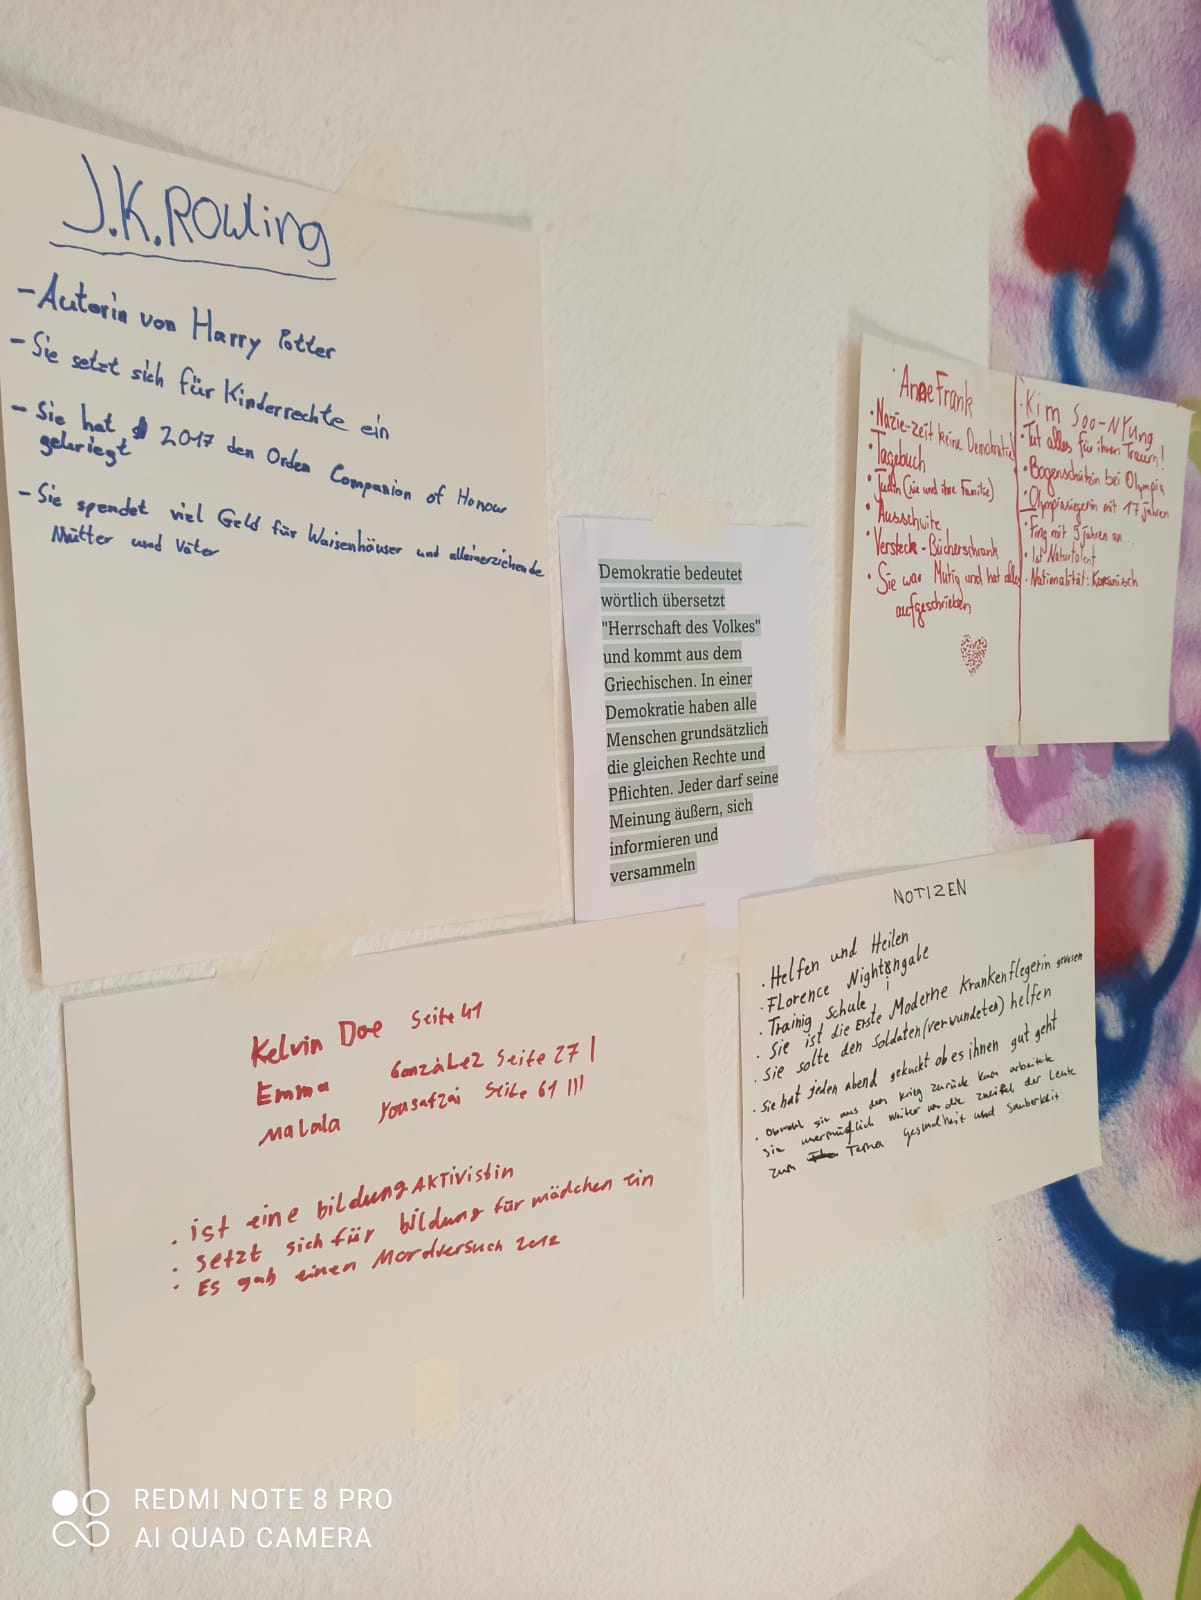 J.K.Rowling
- Autorin von Harry Potter
- Sie setzt sich für Kinderrechte ein
- Sie hat 2017 den Orden Companion of Honour
gekriegt
- Sie spendet viel Geld für Waisenhäuser und alleinerziehende
Mütter und Väter
Demokratie bedeutet
wörtlich übersetzt
"Herrschaft des Volkes"
und kommt aus dem
Griechischen. In einer
Demokratie haben alle
Menschen grundsätzlich
die gleichen Rechte und
Pflichten. Jeder darf seine
Meinung äußern, sich
informieren und
versammeln
· Anne Frank
· Nazie-zeit keine Demokratie
· Tagebuch
· Judin (sie und ihre Familie)
· Ausschwitz
· Versteck - Bücherschrank
· Sie war Mutig und hat alles
aufgeschrieben
· Kim Soo-NYung
· Tut alles für ihren Traum!
· Bogenschützin bei Olympia
· Olympiasiegerin mit 17 Jahren
· Fing mit 9 Jahren an...
· Ist Naturtalent
· Nationalität: Koreanisch
Kelvin Doe Seite 41
Emma Gonzàlez Seite 27 |
Malala Yousafzai Seite 61 |||
· ist eine bildung AKTivistin
· setzt sich für bildung für mädchen ein
· Es gab einen Mordversuch 2012
NOTIZEN
· Helfen und Heilen
· Florence Nightingale
· Trainig Schule
· Sie ist die Erste Moderne Krankenflegerin gewesen
· Sie solte den Soldaten (verwundeten) helfen
· Sie hat jeden abend gekuckt ob es ihnen gut geht
· Obwohl sie aus dem krieg zurück kam arbeitete
sie unermüdlich weiter um die zweifel der Leute
zum Tema Gesundheit und Sauberkeit
REDMI NOTE 8 PRO
AI QUAD CAMERA